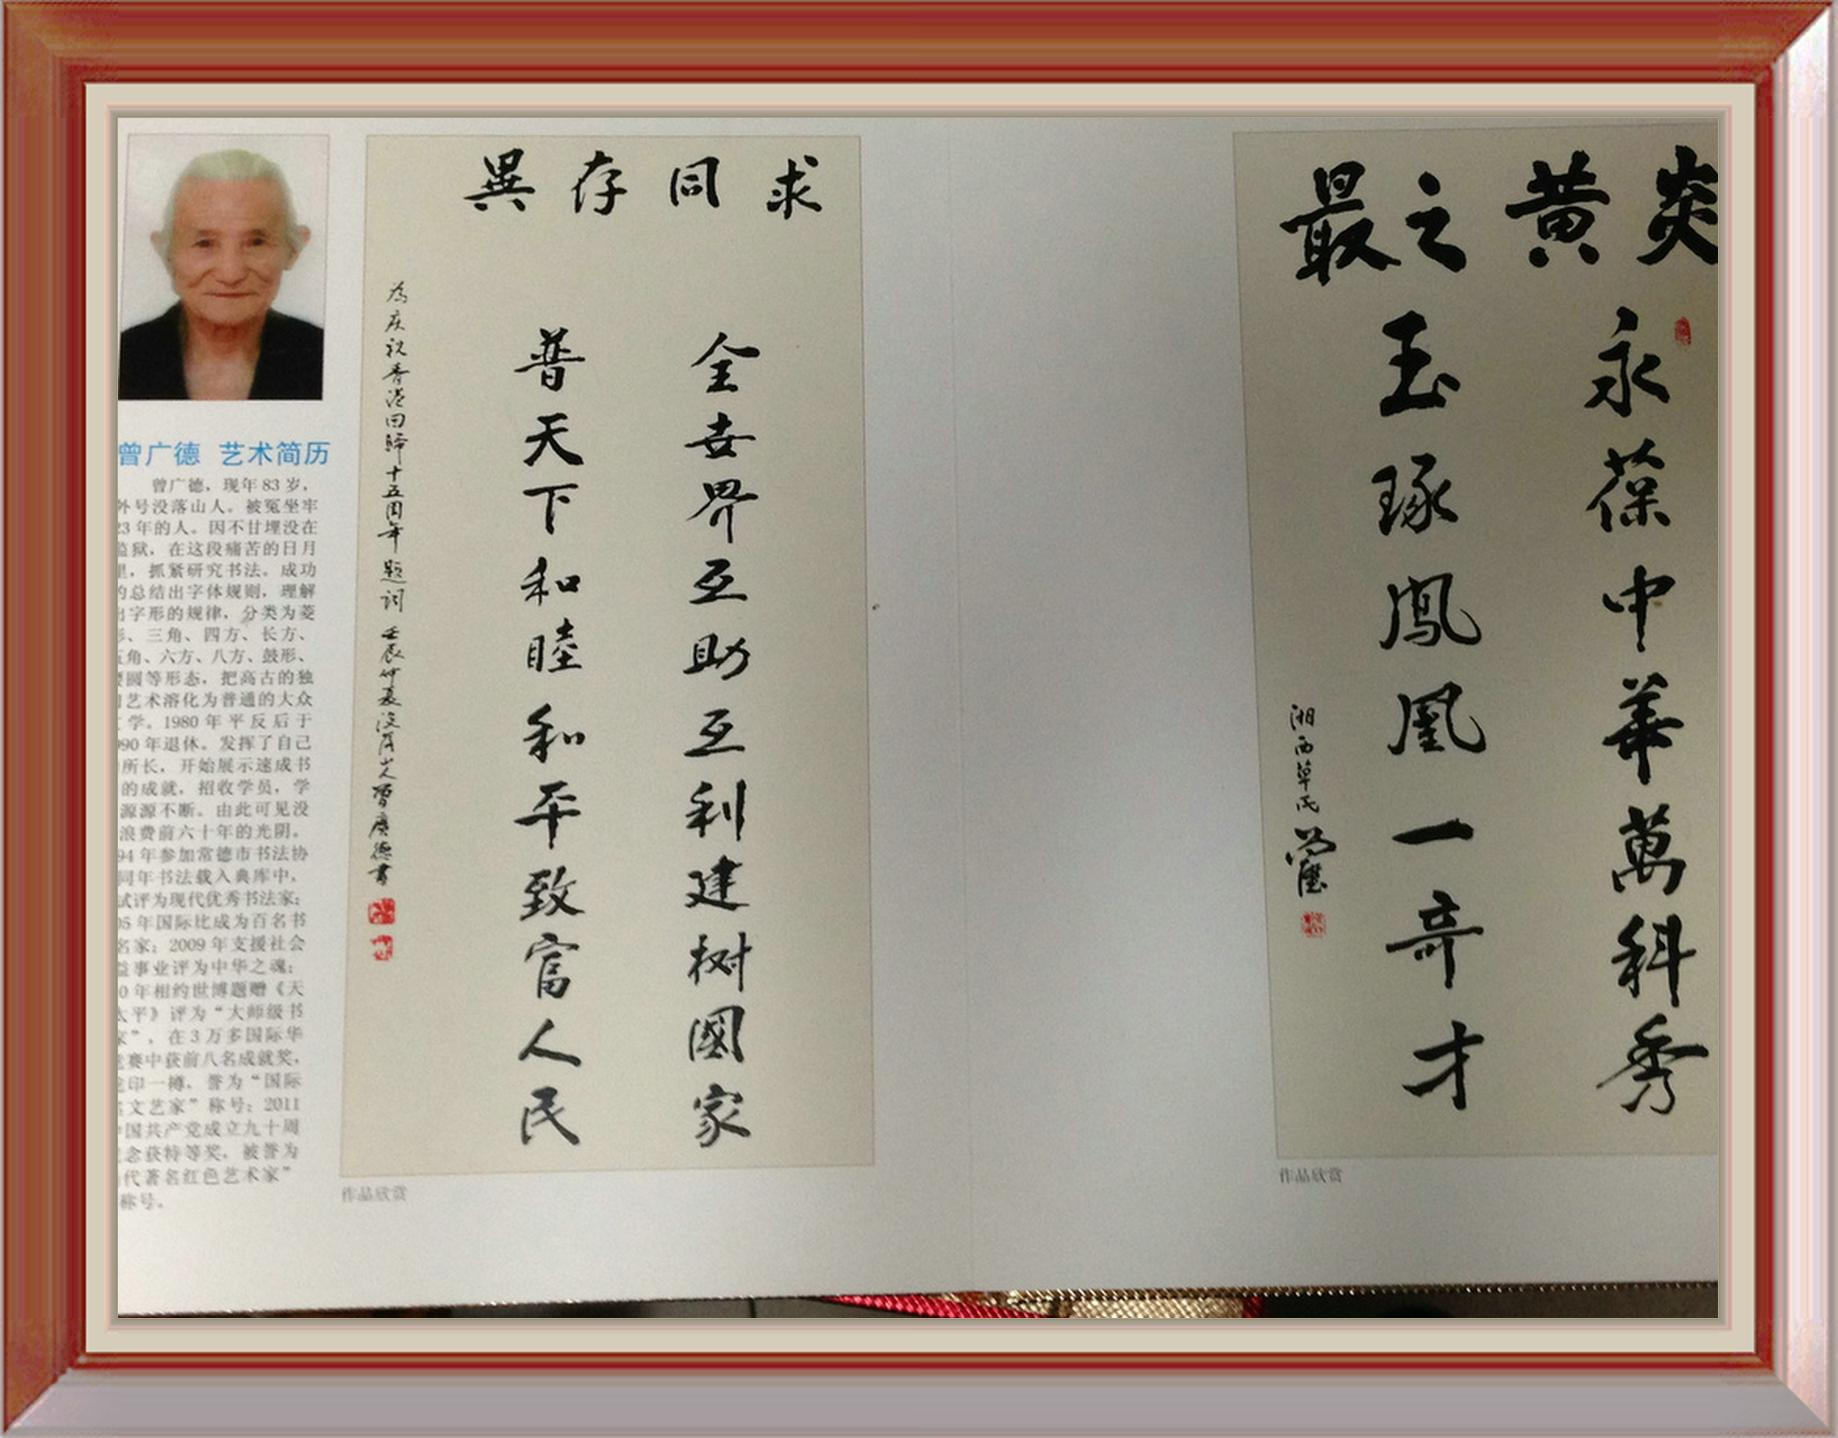 曾广德 艺术简历
曾广德，现年83岁，
外号没落山人。被冤坐牢
23年的人。因不甘埋没在
监狱，在这段痛苦的日月
里，抓紧研究书法。成功
的总结出字体规则，理解
出字形的规律，分类为菱
形、三角、四方、长方、
五角、六方、八方、鼓形、
圆等形态，把高古的独
艺术溶化为普通的大众
文学。1980年平反后于
90年退休。发挥了自己
所长，开始展示速成书
的成就，招收学员，学
源源不断。由此可见没
浪费前六十年的光阴。
94年参加常德市书法协
同年书法载入典库中，
试评为现代优秀书法家；
05年国际比成为百名书
名家；2009年支援社会
益事业评为中华之魂；
0年相约世博题赠《天
太平》评为“大师级书
家”，在3万多国际华
竞赛中获前八名成就奖，
印一樽，誉为“国际
文艺家”称号；2011
中国共产党成立九十周
念获特等奖，被誉为
代著名红色艺术家”
称号。
求同存異
全世界互助互利建树國家
普天下和睦和平致富人民
为庆祝香港回歸十五周年题词 壬辰仲夏没落山人曾廣德書
作品欣赏
炎黄之最
永葆中華萬科秀
玉琢鳳凰一奇才
湘西草民
作品欣赏